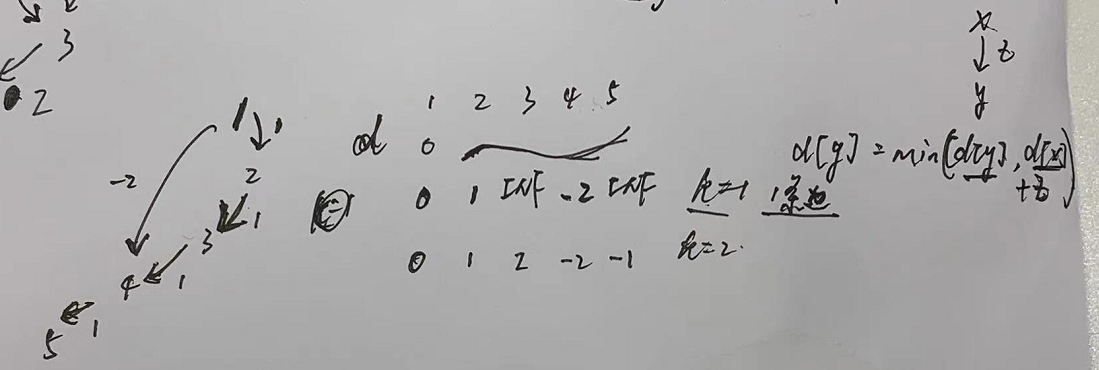 3
2
x
z
y
1 1
-2
2
1
3
4 1
5 1
1 2 3 4 5
d 0
0 1 INF -2 INF k=1 1条边
0 1 2 -2 -1 k=2.
d[y] = min(d[y], d[x]
+z)